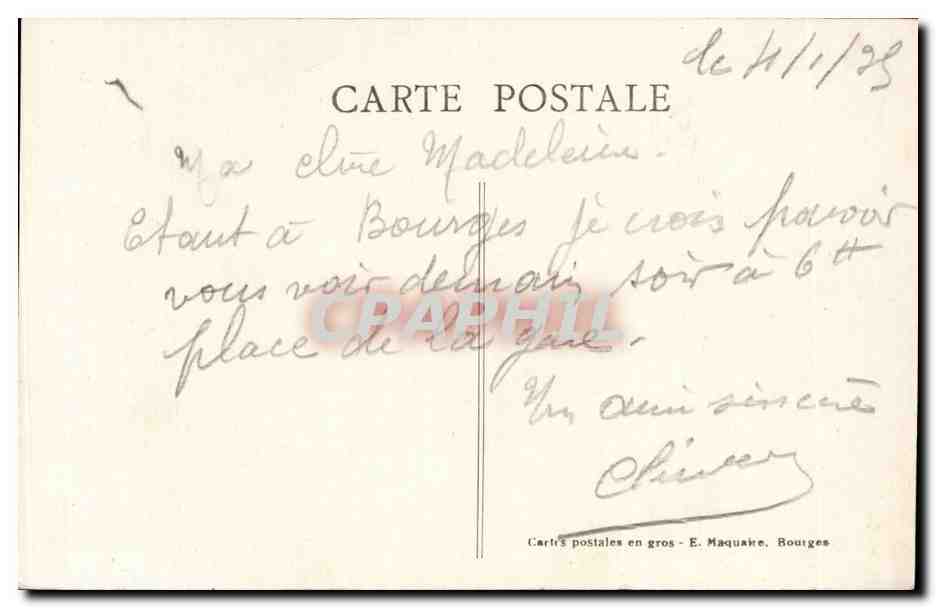 le 4/1/35
CARTE POSTALE
Ma chère Madeleine.
Etant à Bourges je crois pouvoir
vous voir demain soir à 6 H
place de la gare.
Un ami sincère
CPAPHIL
Cartes postales en gros - E. Maquaire, Bourges